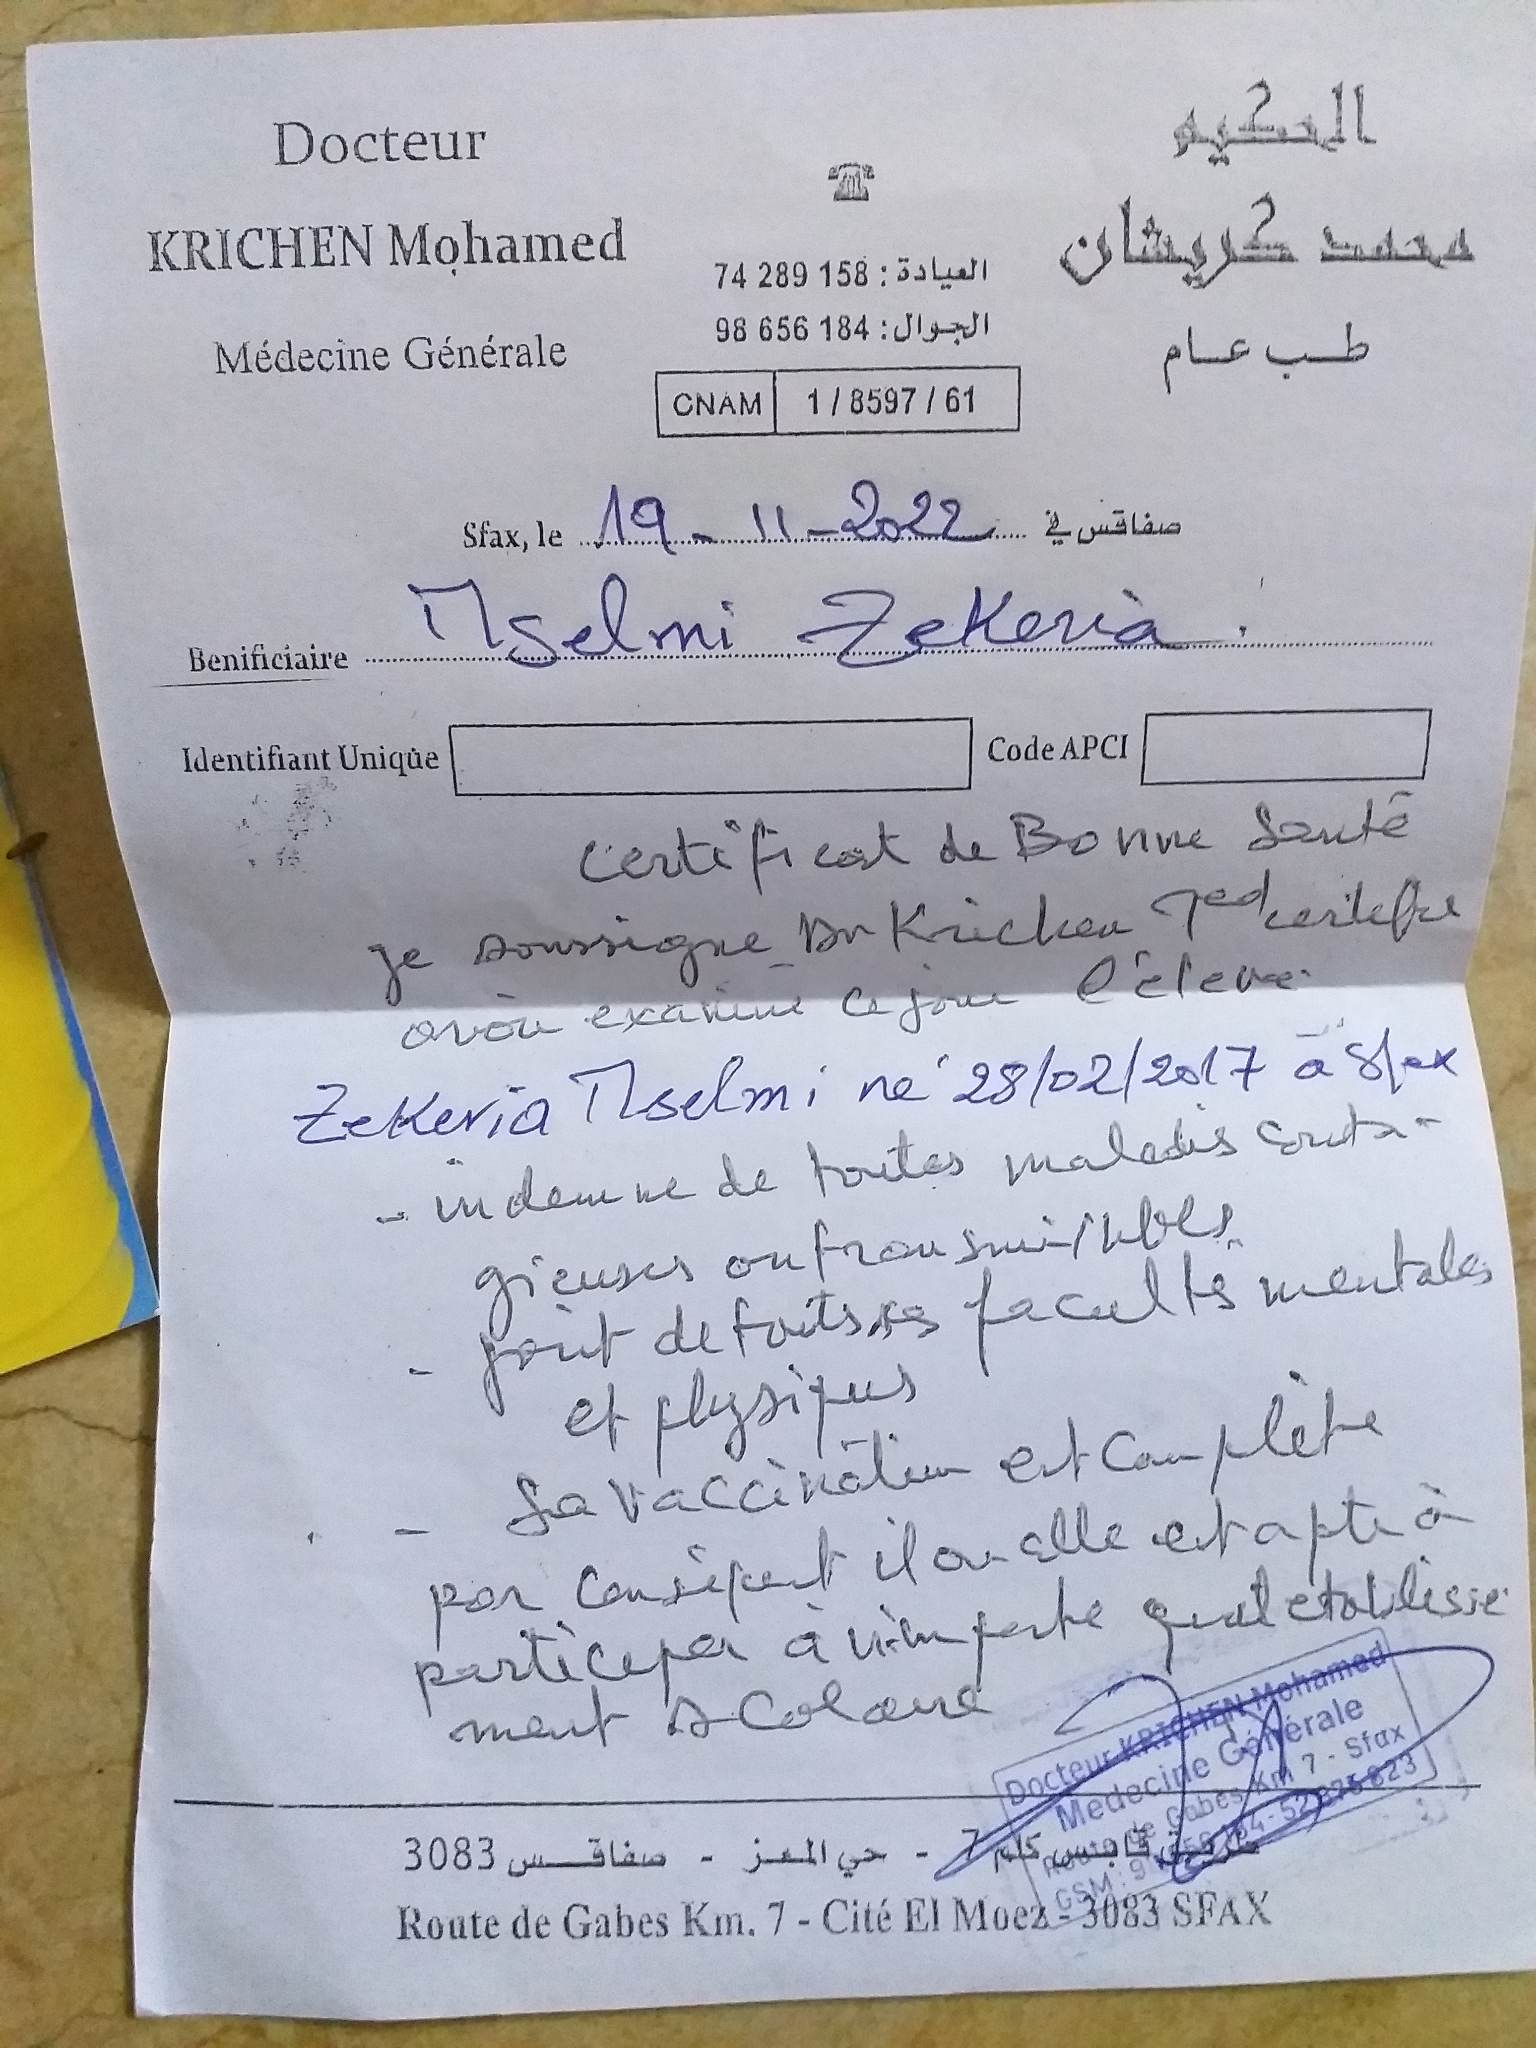 Docteur
KRICHEN Mohamed
Médecine Générale
العيادة : 74 289 158
الجوال : 98 656 184
CNAM 1 / 8597 / 61
الحكيم
محمد كريشان
طب عام
Sfax, le 19-11-2022 صفاقس في
Benificiaire Mselmi Zekeria
Identifiant Unique Code APCI
Certificat de Bonne Santé
je soussigne Dr Krichen Med certifie
avoir examiné ce jour l'éleve
Zekeria Mselmi né 28/02/2017 à Sfax
- indemne de toutes maladies conta-
gieuses ou transmissibles
- jouit de toutes ses facultés mentales
et physiques
- Sa vaccination est complète
par conséquent il ou elle est apte à
participer à n'importe quel etablisse
ment scolaire
Docteur KRICHEN Mohamed
Medecine Générale
Route de Gabes Km 7 - Sfax
GSM :
طريق قابس كلم 7 - حي المعز - صفاقس 3083
Route de Gabes Km. 7 - Cité El Moez - 3083 SFAX